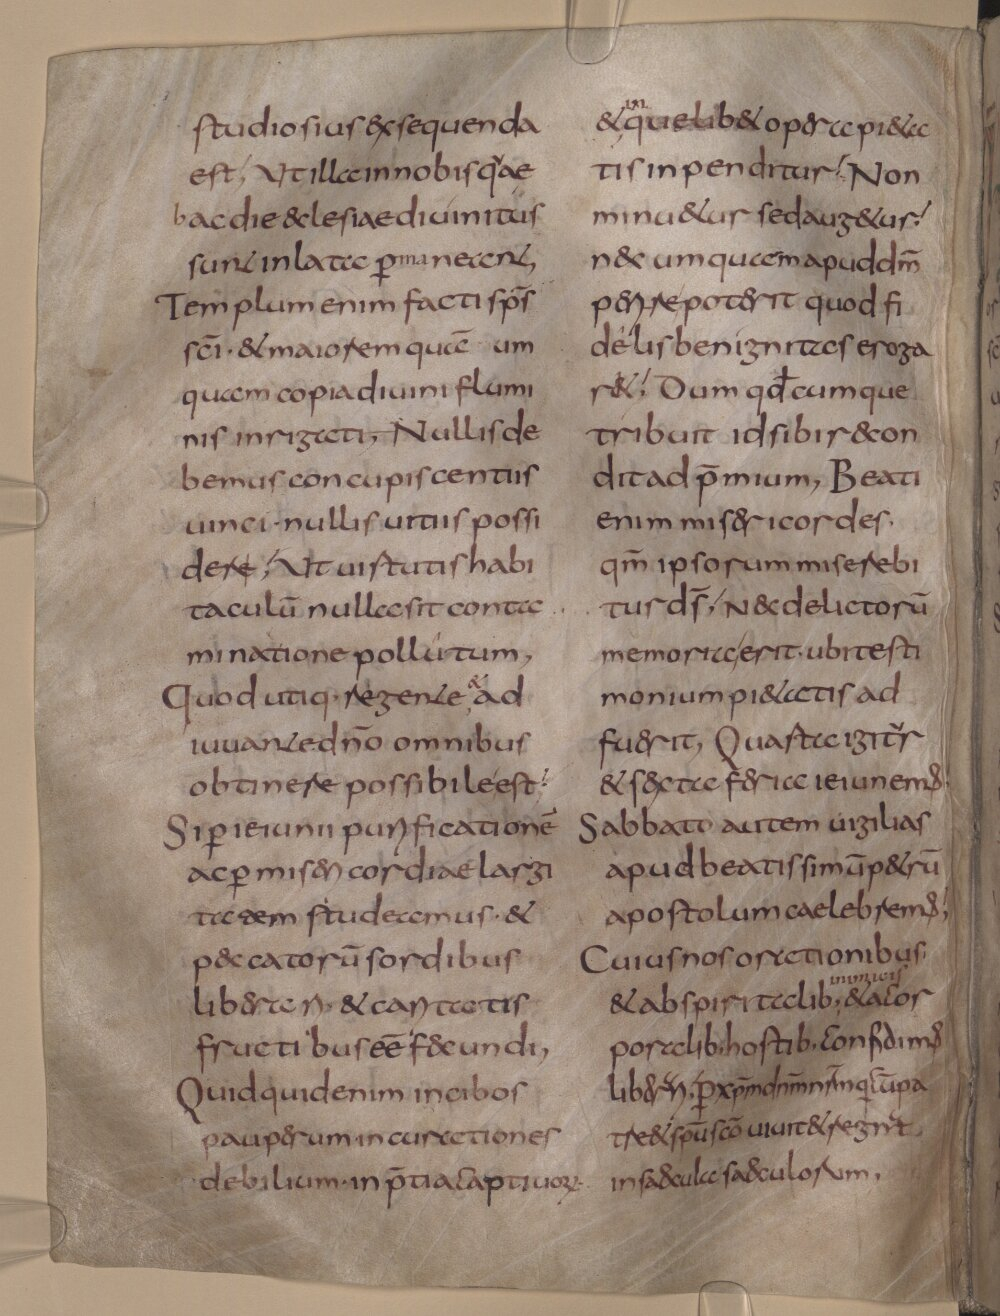 studiosius exsequenda
est; Ut illa in nobis quae
hac die ecclesiae divinitus
sunt inlata permanerent,
Templum enim facti sp̄s
sc̄i · & maiorem quā um
quam copia divini flumi
nis inrigati, Nullis de
bemus concupiscentiis
vinci · nullis vitiis possi
dere; Ut virtutis habi
taculū nulla sit conta
minatione pollutum,
Quod utiq· regente & ad
iuvante dn̄o omnibus
obtinere possibile est;
Si p̄ ieiunii purificationē
ac p̄ misericordiae largi
tatem studeamus · &
peccatorū sordibus
liberari · & caritatis
fructibus eē fecundi,
Quidquid enim in cibos
pauperum in curationes
debilium · in p̄tia captivorꝝ ·
& in quelib& opera pi&a
tis inpenditur; Non
minu&ur sed aug&ur;
nec umquam apud dm̄
perire poterit quod fi
delis benignitas eroga
r&; Dum qđcumque
tribuit id sibi recon
dit ad p̄mium, Beati
enim misericordes ·
qm̄ ipsorum miserebi
tur ds̄; Nec delictorū
memoria erit · ubi testi
monium pi&atis ad
fuerit, Quarta igitur
& sexta feria ieiunem;
Sabbato autem vigilias
apud beatissimū p&rū
apostolum caelebrem;
Cuius nos orationibus
& ab spiritalib; inimicis & a cor
poralib· hostib· confidim;
liberari · p̄ xp̄m dn̄m nr̄m qui cū pa
tre & sp̄u sc̄o vivit & regnat
in saecula saeculorum,